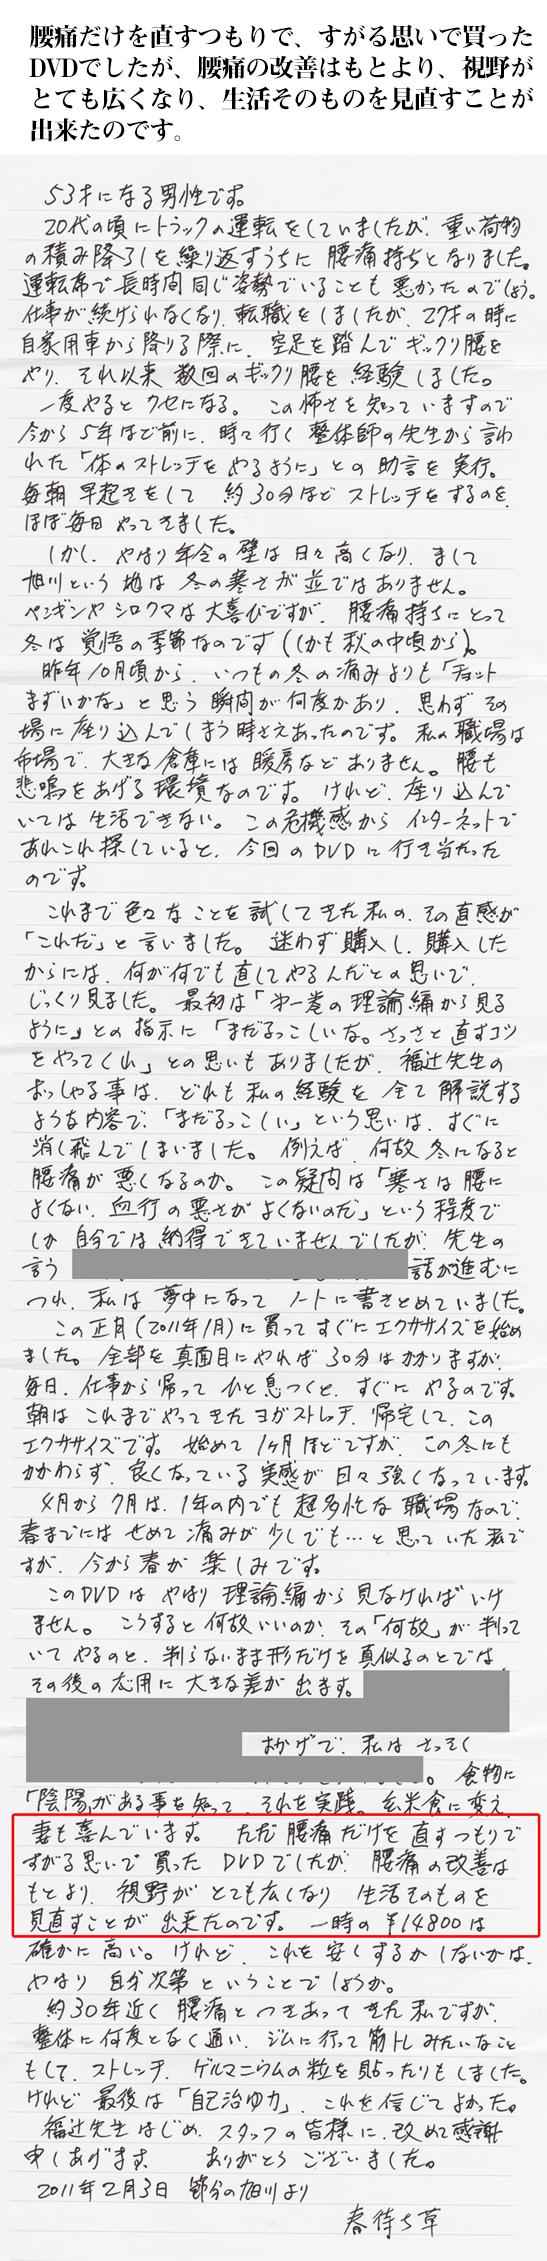 腰痛だけを直すつもりで、すがる思いで買った
DVDでしたが、腰痛の改善はもとより、視野が
とても広くなり、生活そのものを見直すことが
出来たのです。
53才になる男性です。
20代の頃にトラックの運転をしていましたが、重い荷物
の積み降ろしを繰り返すうちに腰痛持ちとなりました。
運転席で長時間同じ姿勢でいることも悪かったのでしょう。
仕事が続けられなくなり、転職をしましたが、27才の時に
自家用車から降りる際に、空足を踏んでギックリ腰を
やり、それ以来数回のギックリ腰を経験しました。
一度やるとクセになる。この怖さを知っていますので
今から5年ほど前に、時々行く整体師の先生から言わ
れた「体のストレッチをやるように」との助言を実行。
毎朝早起きをして 約30分ほどストレッチをするのを、
ほぼ毎日やってきました。
しかし、やはり年令の壁は日々高くなり、まして
旭川という地は冬の寒さが並ではありません。
ペンギンやシロクマは大喜びですが、腰痛持ちにとって
冬は覚悟の季節なのです(しかも秋の中頃から)。
昨年10月頃から、いつもの冬の痛みよりも「チョット
まずいかな」と思う瞬間が何度かあり、思わずその
場に座り込んでしまう時さえあったのです。私の職場は
市場で、大きな倉庫には暖房などありません。腰も
悲鳴をあげる環境なのです。けれど、座り込んで
いては生活できない。この危機感からインターネットで
あれこれ探していると、今回のDVDに行き当たった
のです。
これまで色々なことを試してきた私の、その直感が
「これだ」と言いました。迷わず購入し、購入した
からには、何が何でも直してやるんだとの思いで、
じっくり見ました。最初は「第一巻の理論編から見る
ように」との指示に「まだるっこしいな。さっさと直すコツ
をやってくれ」との思いもありましたが、福辻先生の
おっしゃる事は、どれも私の経験を全て解説する
ような内容で、「まだるっこしい」という思いは、すぐに
消し飛んでしまいました。例えば、何故冬になると
腰痛が悪くなるのか。この疑問は「寒さは腰に
よくない、血行の悪さがよくないのだ」という程度で
しか自分では納得できていませんでしたが、先生の
言う 話が進むに
つれ、私は夢中になってノートに書きとめていました。
この正月(2011年1月)に買ってすぐにエクササイズを始め
ました。全部を真面目にやれば30分はかかりますが、
毎日、仕事から帰ってひと息つくと、すぐにやるのです。
朝はこれまでやってきたヨガストレッチ、帰宅して、この
エクササイズです。始めて1ヶ月ほどですが、この冬にも
かかわらず、良くなっている実感が日々強くなっています。
4月から7月は、1年の内でも超多忙な職場なので、
春までにはせめて痛みが少しでも…と思っていた私で
すが、今から春が楽しみです。
このDVDはやはり理論編から見なければいけ
ません。こうすると何故いいのか、その「何故」が判って
いてやるのと、判らないまま形だけを真似るのとでは、
その後の応用に大きな差が出ます。
おかげで、私はさっそく
。食物に
「陰陽」がある事を知って、それを実践。玄米食に変え、
妻も喜んでいます。ただ腰痛だけを直すつもりで
すがる思いで買ったDVDでしたが、腰痛の改善は
もとより、視野がとても広くなり 生活そのものを
見直すことが出来たのです。一時の¥14800は
確かに高い。けれど、これを安くするかしないかは、
やはり自分次第ということでしょうか。
約30年近く腰痛とつきあってきた私ですが、
整体に何度となく通い、ジムに行って筋トレみたいなこと
もして、ストレッチ、ゲルマニウムの粒を貼ったりもしました。
けれど最後は「自己治ゆ力」、これを信じてよかった。
福辻先生はじめ、スタッフの皆様に、改めて感謝
申しあげます、 ありがとうございました。
2011年2月3日 節分の旭川より
春待ち草